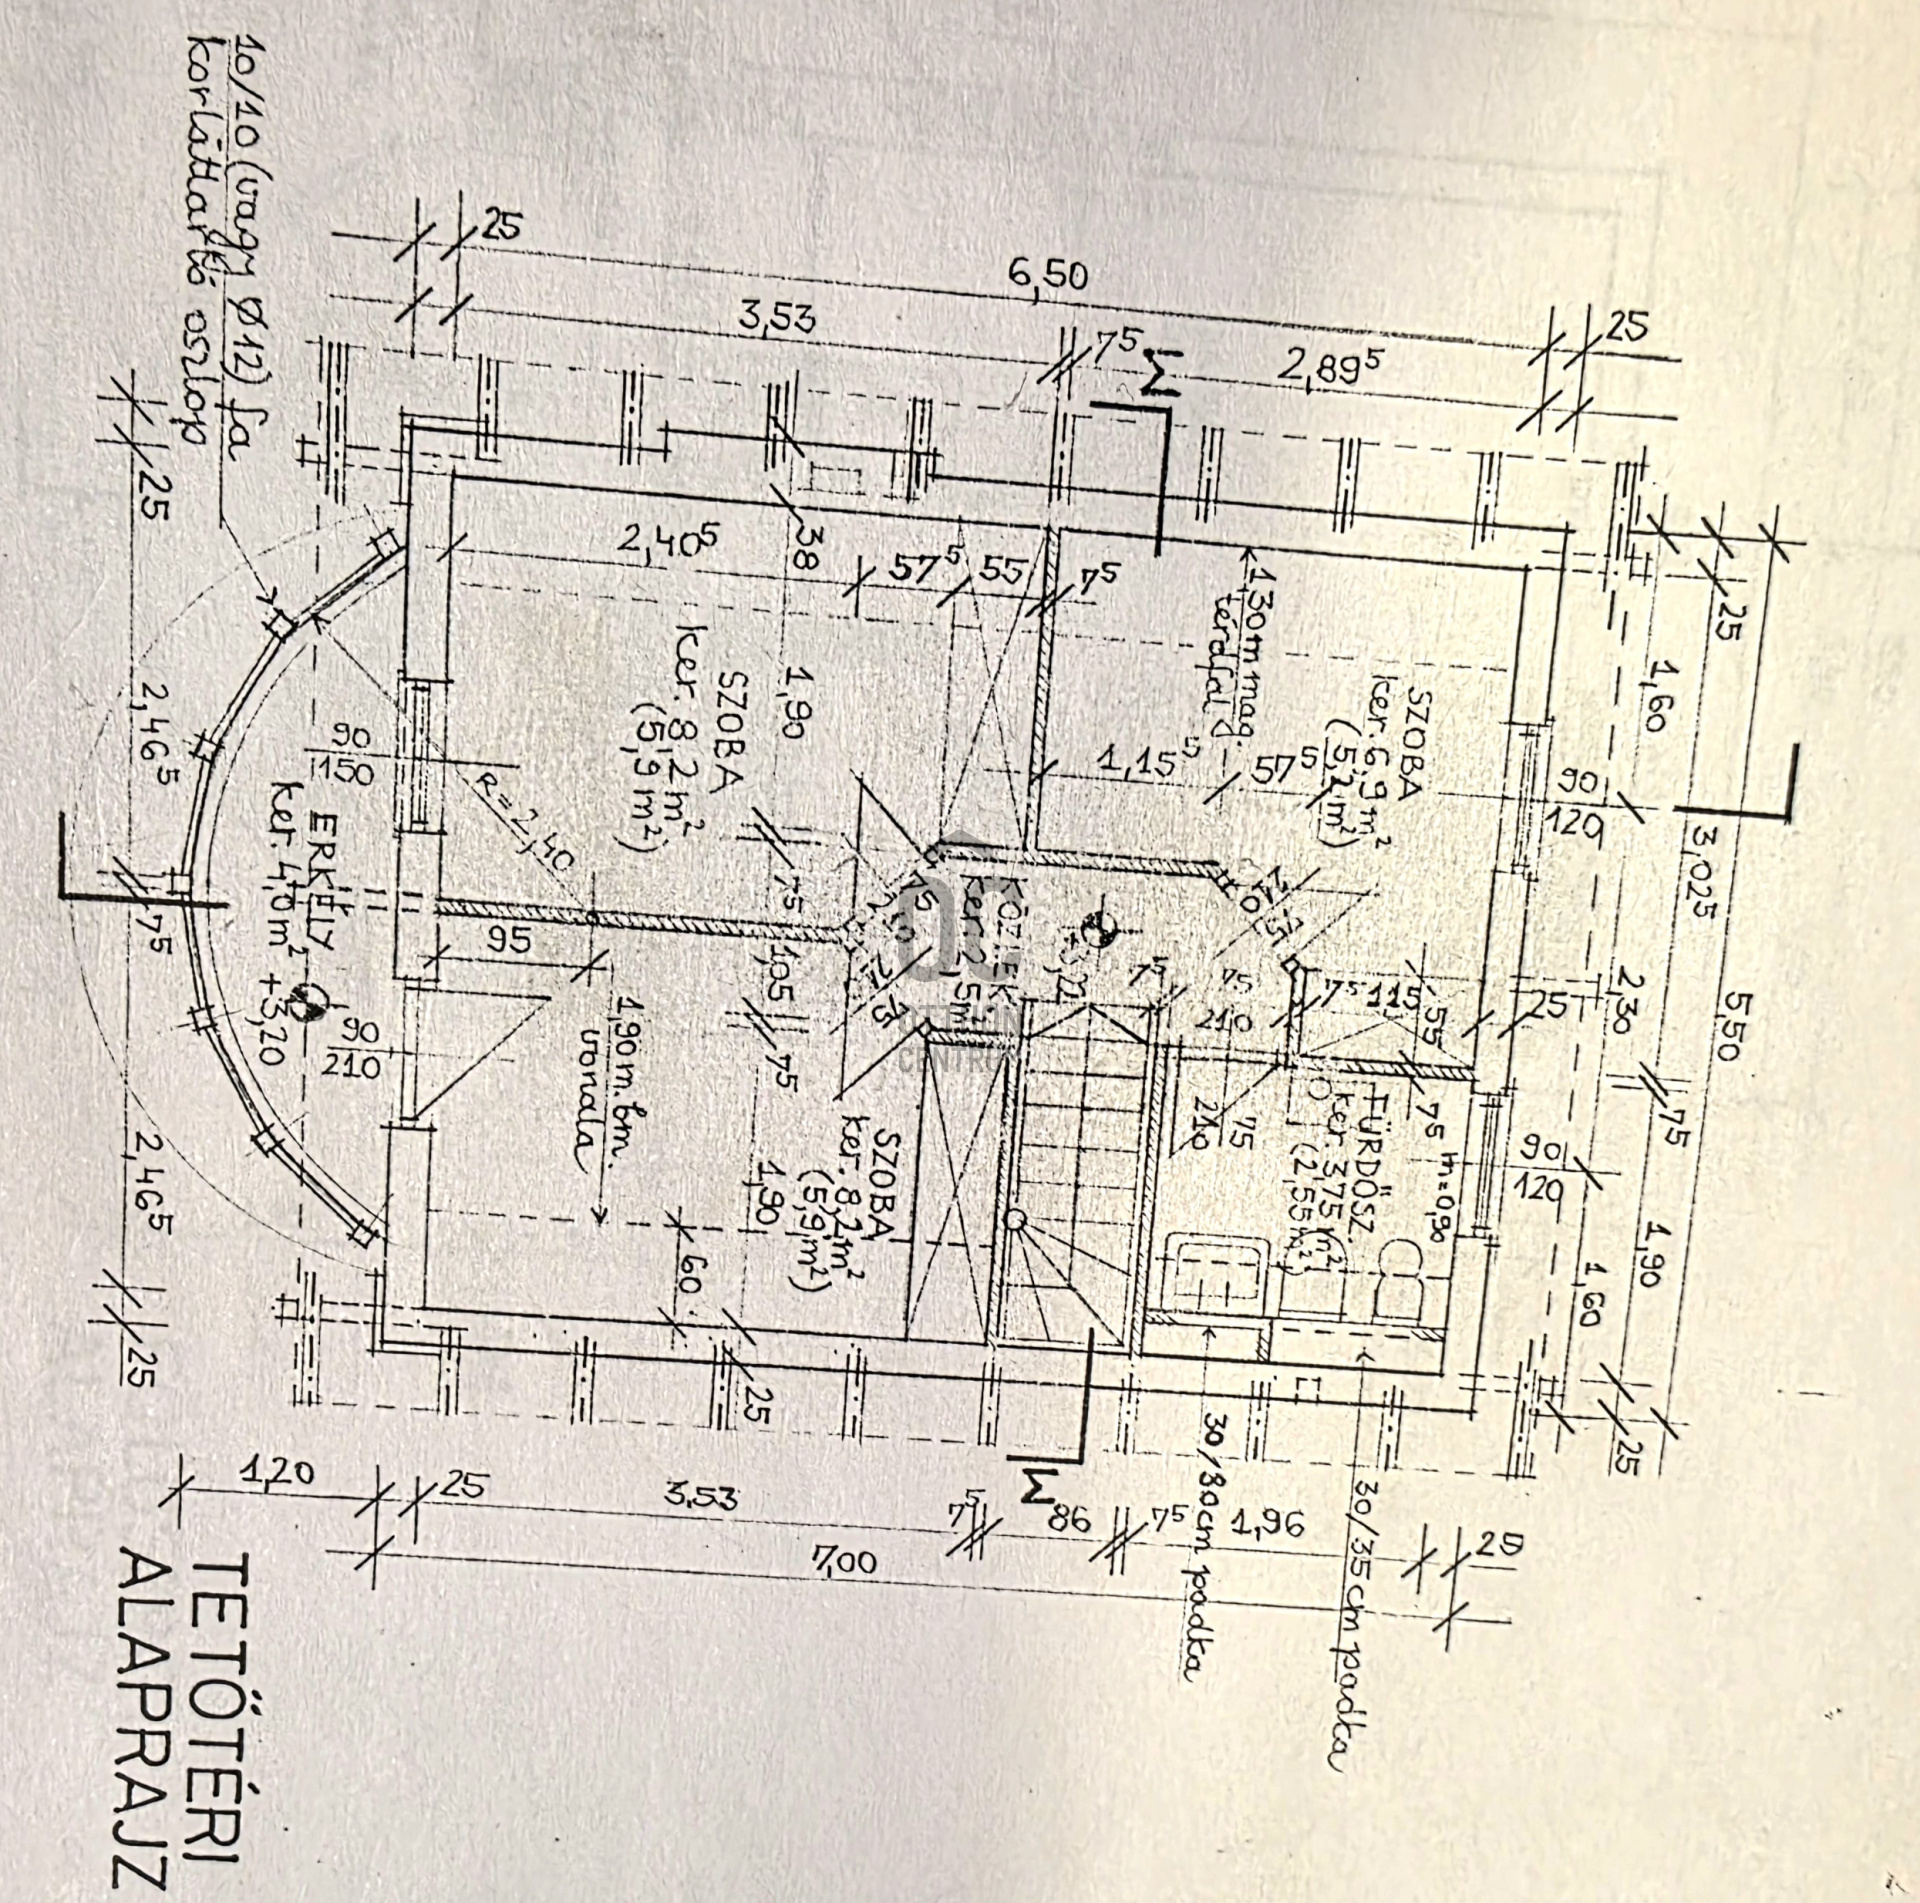 10/10 (vagy Ø12) fa
korláttartó oszlop
25
6,50
25
3,53
7⁵
2,89⁵
Σ
2,40⁵
38
57⁵
55
7⁵
1,30m mag.
térdfal
SZOBA
ker. 8,2m²
(5,9m²)
1,90
SZOBA
ker. 6,9m²
(5,2m²)
1,15⁵
57⁵
90
150
R=2,40
90
120
25
1,60
3,025
5,50
2,30
25
7⁵
1,90
1,60
25
25
2,46⁵
7⁵
2,46⁵
25
ERKÉLY
ker. 4,0m²
+3,20
90
210
95
1,90m.bm.
vonala
75
1,05
75
75
210
KÖZLEK.
ker. 2,5m²
7⁵
75
210
7⁵
115
55
75
FÜRDŐSZ.
ker. 3,75m²
(2,55m²)
m=0,90
90
120
75
210
SZOBA
ker. 8,2m²
(5,9m²)
1,90
60
25
30/80cm padka
30/35cm padka
OC
OTTHON
CENTRUM
1,20
25
3,53
7⁵
Σ
86
7⁵
1,96
25
7,00
TETŐTÉRI
ALAPRAJZ